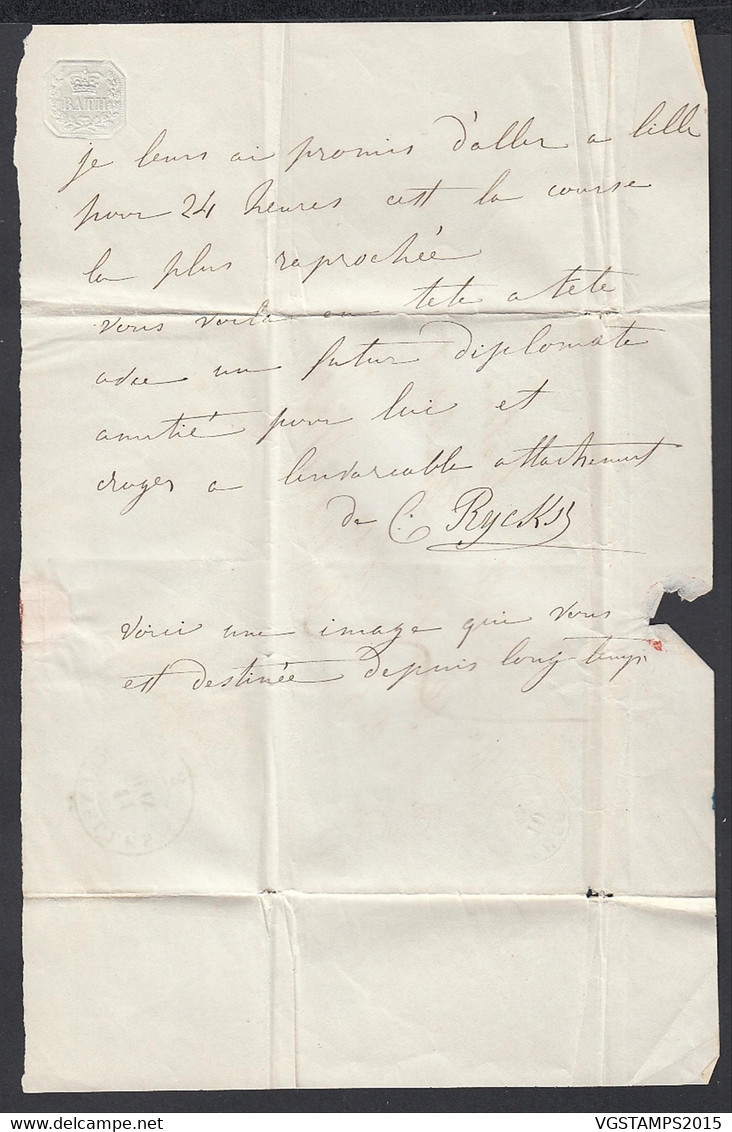 BATH
je leurs ai promis d'aller a lille
pour 24 heures cest la course
la plus raprochée
vous voila en tete a tete
avec un futur diplomate
amitié pour lui et
croyez a linvariable attachement
de C. Ryckx
voici une image qui vous
est destinée depuis long-temps
VGSTAMPS2015